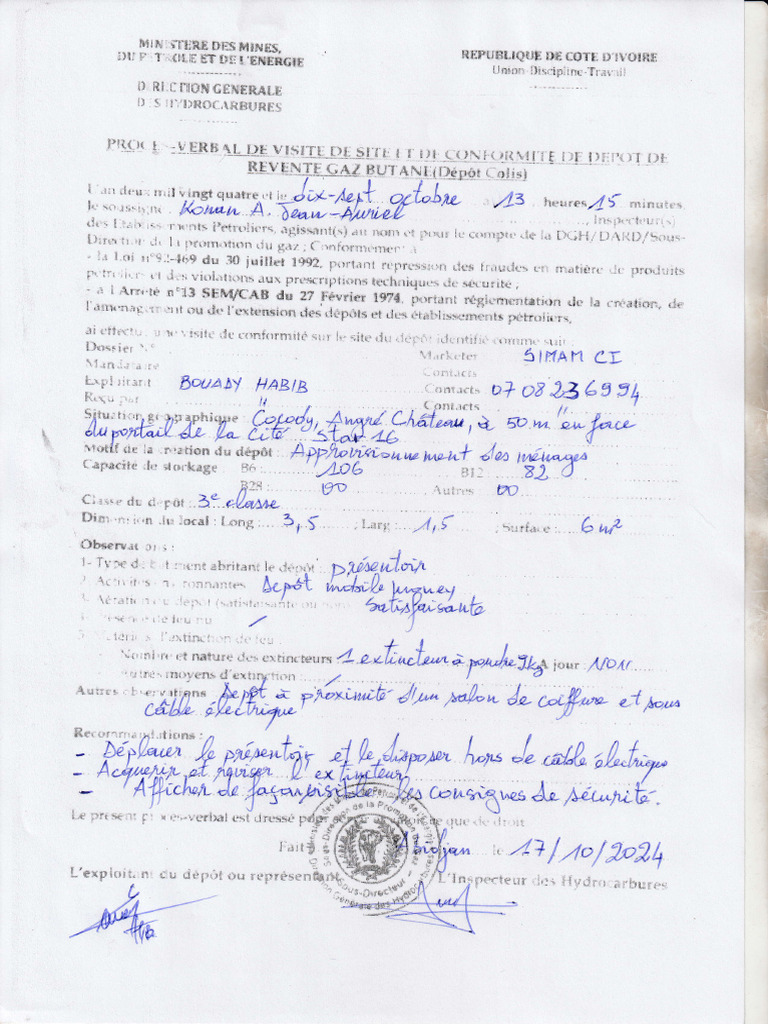 MINISTERE DES MINES,
DU PETROLE ET DE L'ENERGIE
REPUBLIQUE DE COTE D'IVOIRE
Union-Discipline-Travail
DIRECTION GENERALE
DES HYDROCARBURES
PROCES-VERBAL DE VISITE DE SITE ET DE CONFORMITE DE DEPOT DE
REVENTE GAZ BUTANE(Dépôt Colis)
L'an deux mil vingt quatre et le dix-sept octobre à 13 heures 15 minutes
Je soussigné Konan A. Jean-Auriel, Inspecteur(s)
des Etablissements Pétroliers, agissant(s) au nom et pour le compte de la DGH/DARD/Sous-
Direction de la promotion du gaz ; Conformément à
- la Loi n°92-469 du 30 juillet 1992, portant répression des fraudes en matière de produits
pétroliers et des violations aux prescriptions techniques de sécurité ;
- à l'Arreté n°13 SEM/CAB du 27 Février 1974, portant réglementation de la création, de
l'aménagement ou de l'extension des dépôts et des établissements pétroliers,
ai effectué une visite de conformité sur le site du dépôt identifié comme suit :
Dossier N° Marketer SIMAM CI
Mandataire Contacts
Exploitant BOUADY HABIB Contacts 07 08 236994
Reçu par " Contacts "
Situation géographique : Cocody, Angré Château, à 50 m en face
du portail de la Cité Star 16
Motif de la création du dépôt : Approvisionnement des ménages
Capacité de stockage B6 : 106 B12 : 82
B28 : 00 Autres : 00
Classe du dépôt : 3e classe
Dimension du local : Long : 3,5 ; Larg : 1,5 ; Surface : 6 m²
Observations :
1- Type de bâtiment abritant le dépôt : présentoir
2. Activités environnantes Depôt mobile money
3. Aération du dépôt (satisfaisante ou non) Satisfaisante
4. Présence de feu nu /
5. Matériels d'extinction de feu :
Nombre et nature des extincteurs 1 extincteur à poudre 9kg A jour : NON
Autres moyens d'extinction : /
Autres observations Depôt à proximité d'un salon de coiffure et sous
câble électrique
Recommandations :
- Déplacer le présentoir et le disposer hors de câble électrique
- Acquerir et reviser l'extincteur
- Afficher de façon visible les consignes de sécurité.
Le present procès-verbal est dressé pour valoir ce que de droit
Fait à Abidjan le 17/10/2024
L'exploitant du dépôt ou représentant L'Inspecteur des Hydrocarbures